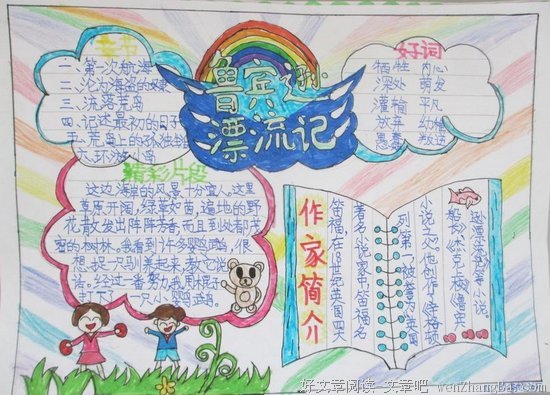 章节
一、第次航海
二、沦为海盗的
三、流落荒岛
四、记述最初的日子
五、荒岛上的环
六、环游小岛
鲁宾逊
漂流记
好词
牺牲 内心
深处 萌发
谨慎 平凡
放弃 幼稚
愚蠢 叛逆
精彩片段
这边海岸的风景十分宜人。这里
草原开阔,绿草如茵,遍地的野
花散发出阵阵芳香,而且到处都茂
密的树林。我看到许多鹦鹉,很
想捉一只驯养起来,教它说
话。经过一番努力,我用棍子
打下了一只小鹦鹉。
作家简介
笛福,在18世纪英国四大
著名小说家中,笛福名
列第一,被誉为英国
小说之父。他创作
船长》《杰克上校》《鲁宾
逊漂流记》等小说
好文章阅读-文章吧 wenZhangBa.com